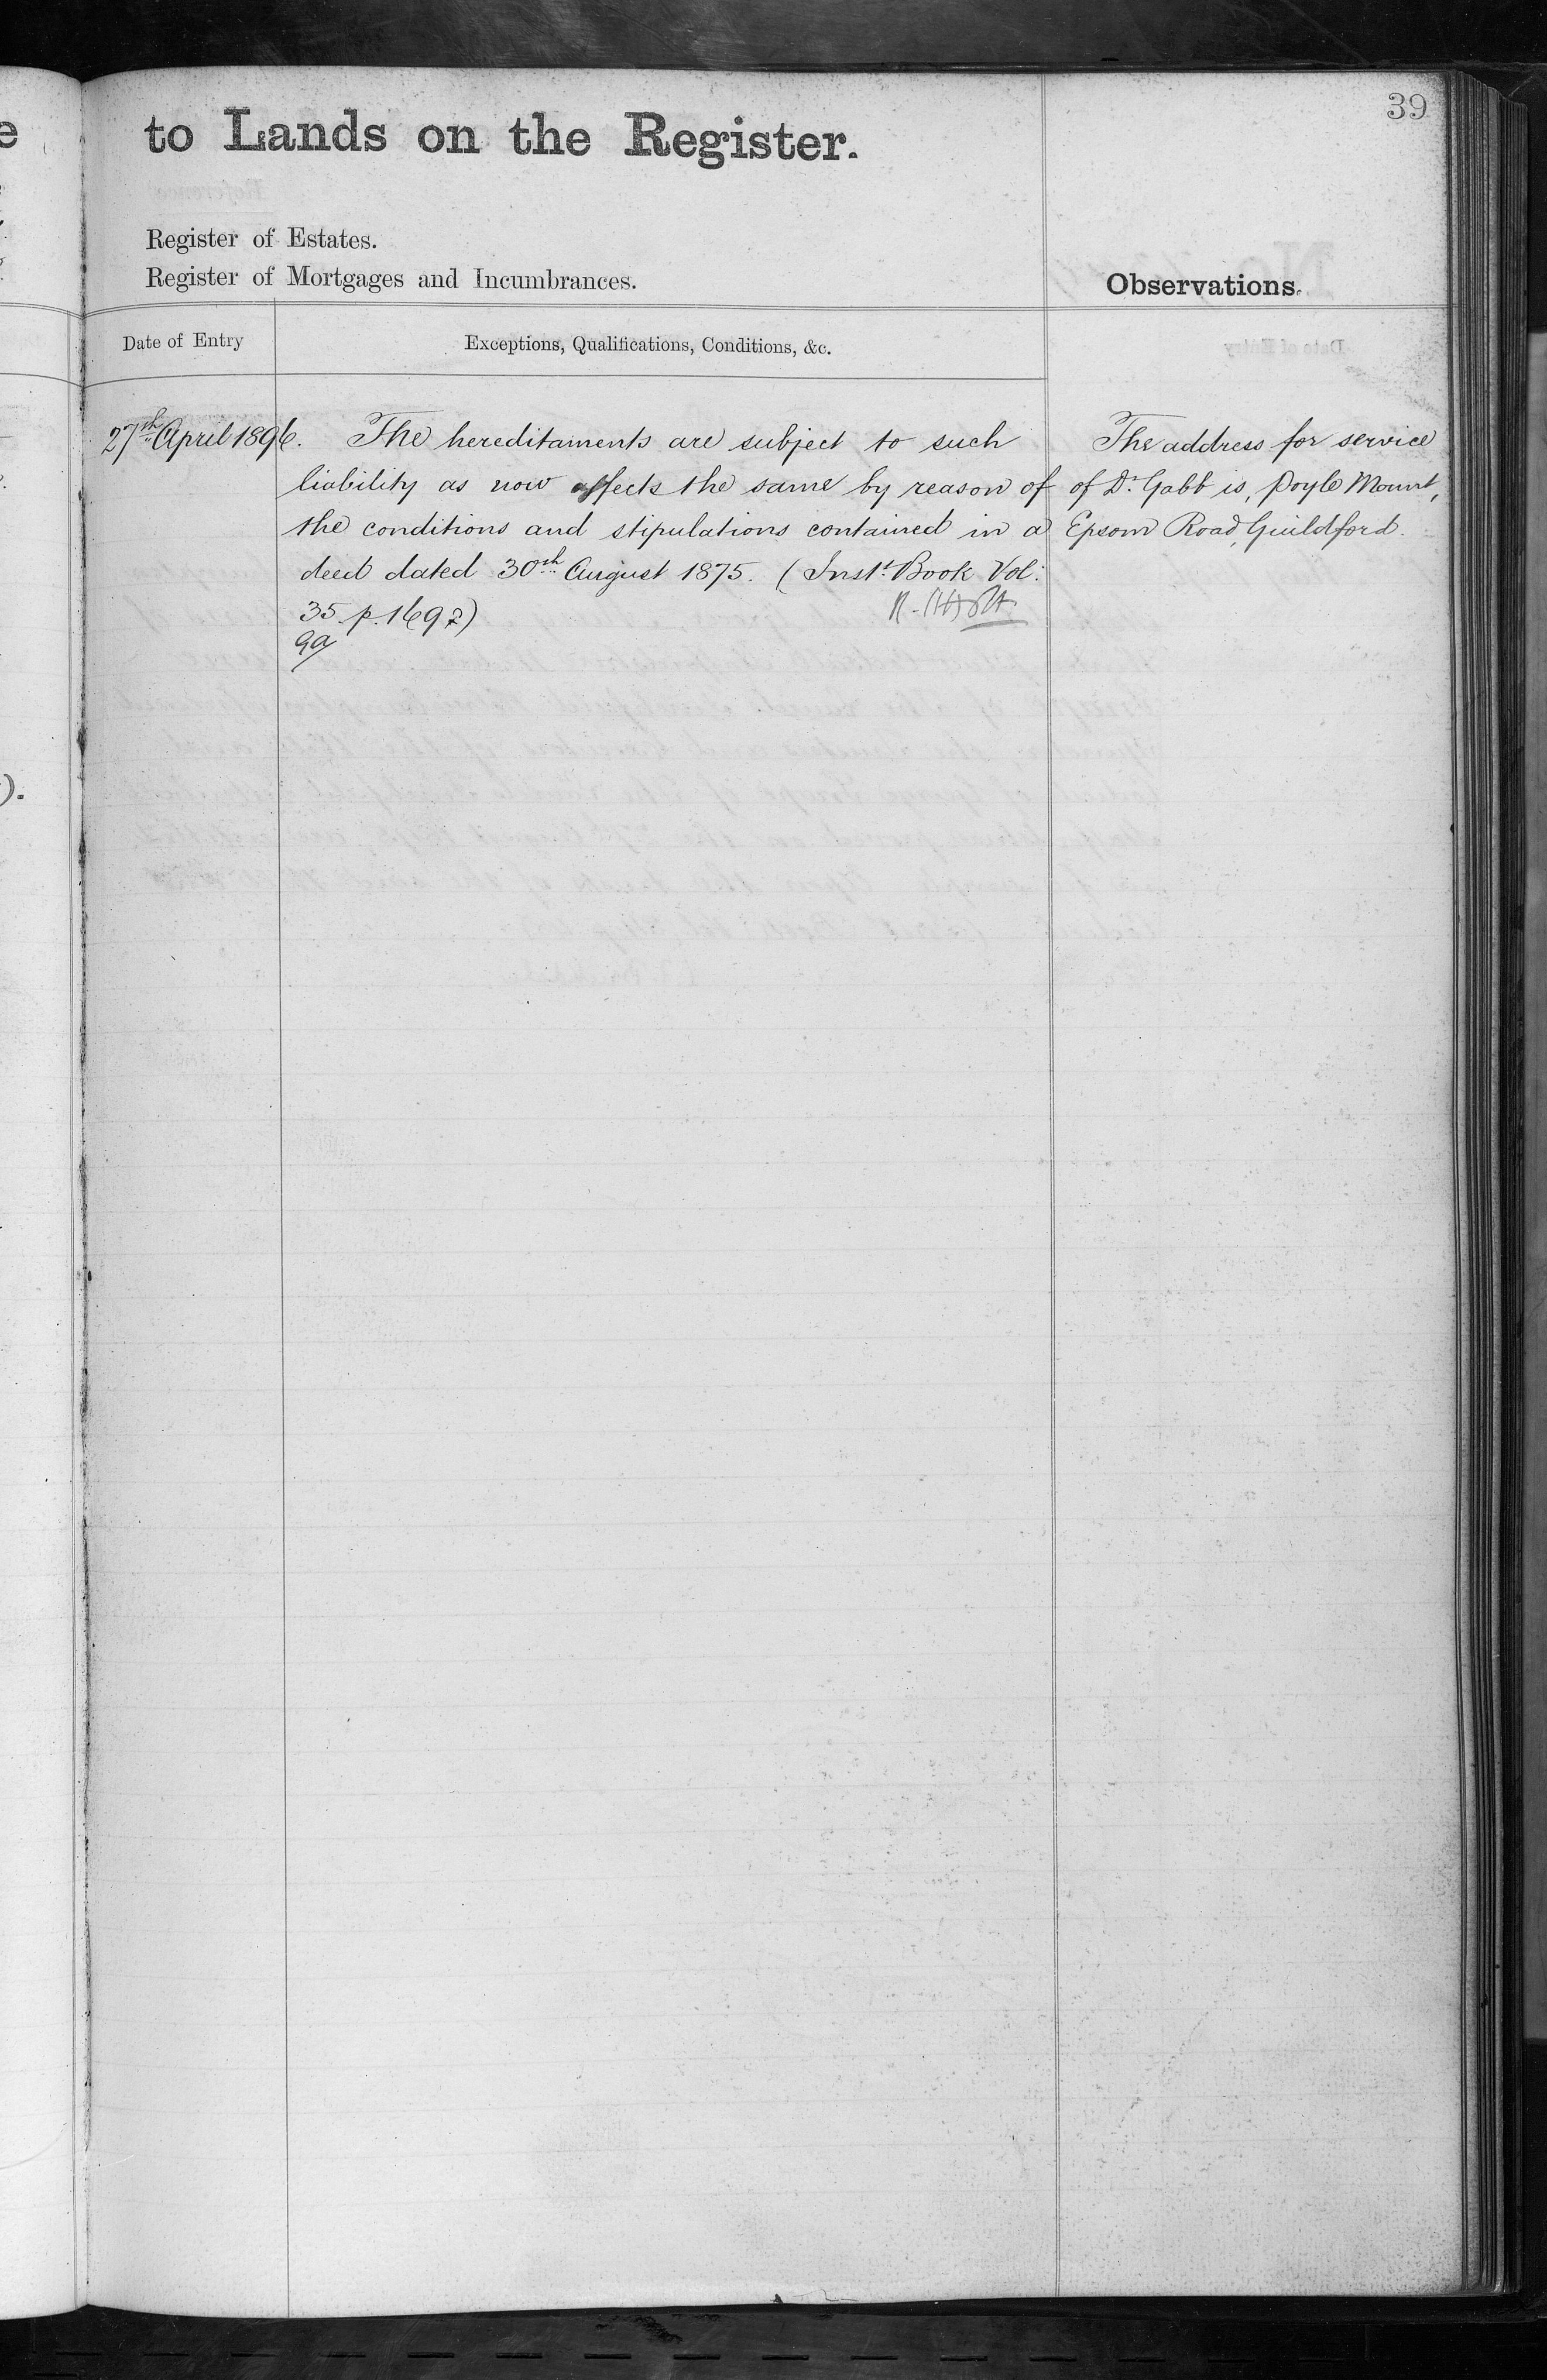 39
to Lands on the Register.
Register of Estates.
Register of Mortgages and Incumbrances.
Observations.
Date of Entry
Exceptions, Qualifications, Conditions, &c.
27th April 1896.
The hereditaments are subject to such
liability as now affects the same by reason of
the conditions and stipulations contained in a
deed dated 30th August 1875. (Inst. Book Vol:
35. p. 1697)
The address for service
of Dr. Gabb is, Poyle Mount,
Epsom Road, Guildford.